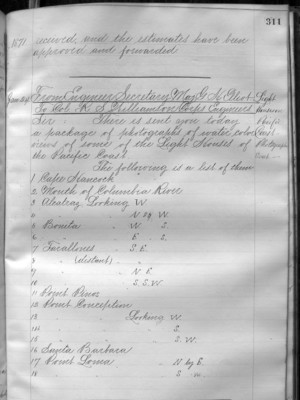 311
1871 received and the estimates have been
approved and forwarded
From Engineer Secretary Maj G. H. Elliot
To Col. R. S. Williamson Corps Engineers
Light
Houses
Pacific
Coast
Photographs
Sir: There is sent you today
a package of photographs of water color
views of some of the Light Houses of
the Pacific Coast.
The following is a list of them
1 Cape Hancock
2 Mouth of Columbia River
3 Alcatraz Looking W.
4 " " N by W.
5 Bonita " W. S.
6 " " E. S.
7 Farallones " S. E.
8 " (distant) " "
9 " " N. E.
10 " " S. S. W.
11 Point Pinos
12 Point Conception
13 " " Looking W.
14 " " " S.
15 " " " S. W.
16 Santa Barbara
17 Point Loma " N by E.
18 " " " S